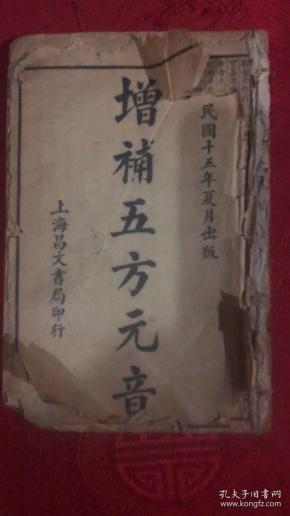 民國十五年夏月出版
增補五方元音
上海昌文書局印行
孔夫子旧书网